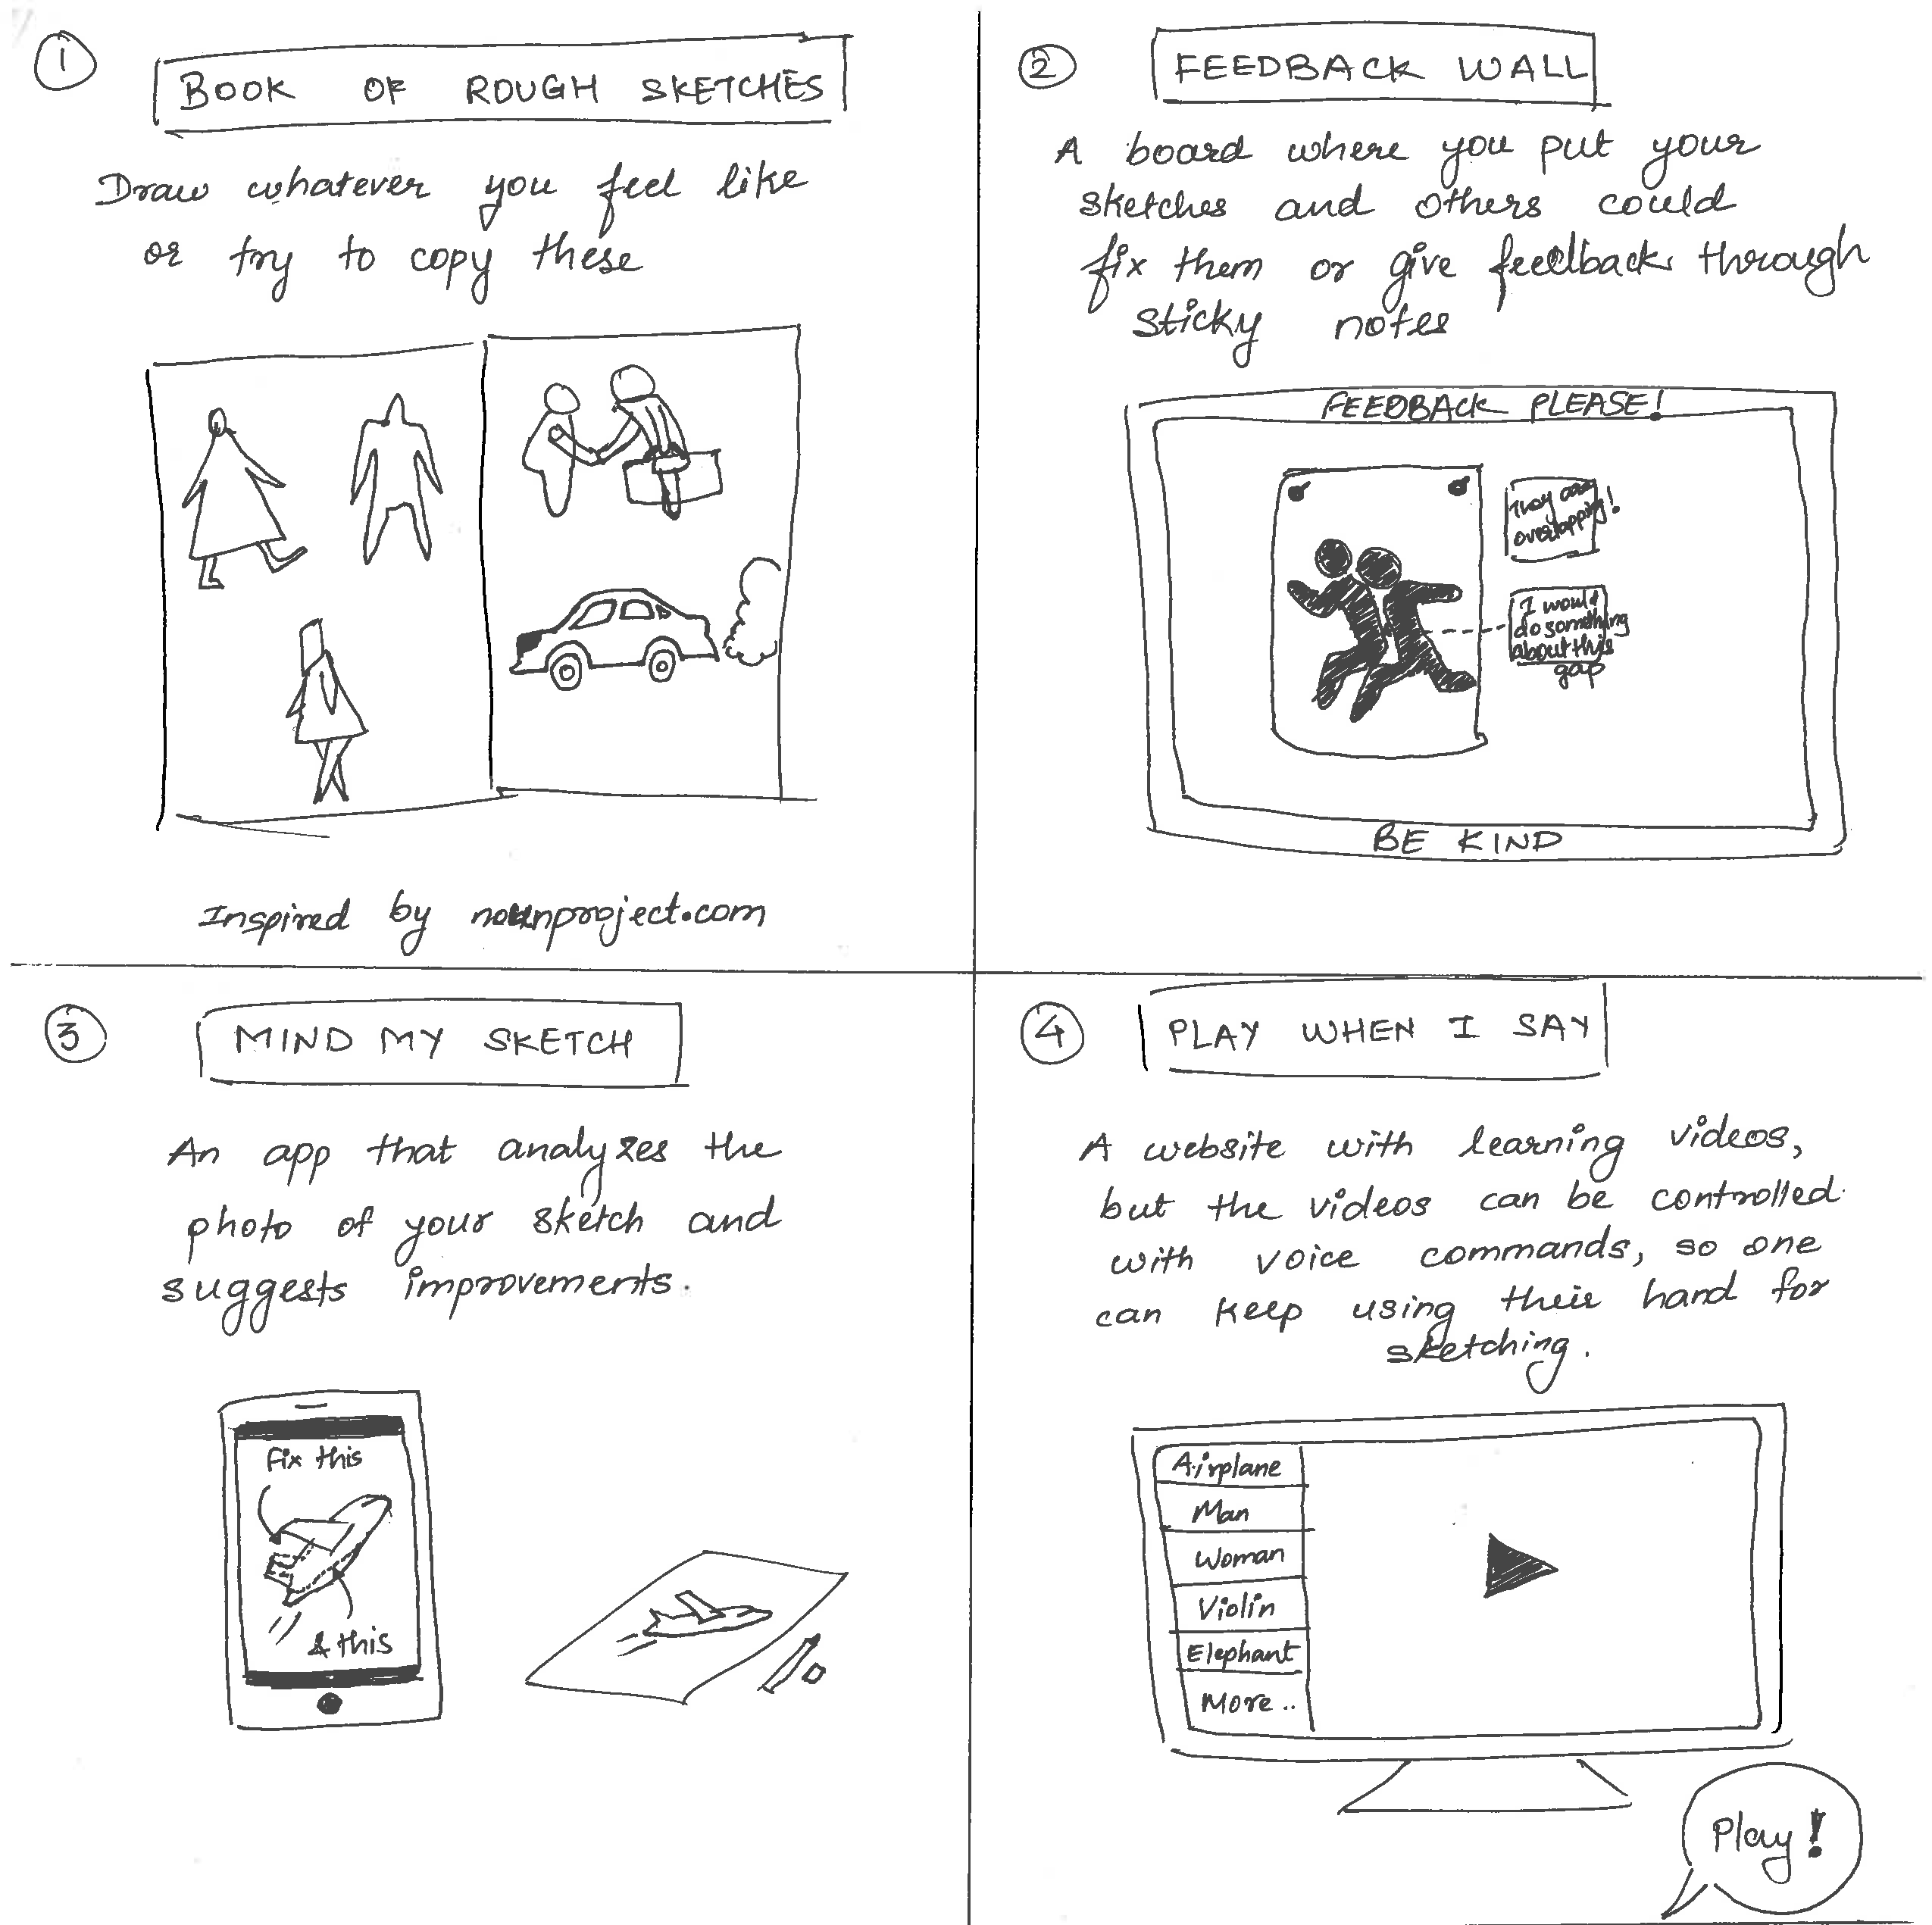 1
BOOK OF ROUGH SKETCHES
Draw whatever you feel like
or try to copy these
Inspired by nounproject.com
2
FEEDBACK WALL
A board where you put your
sketches and others could
fix them or give feedback through
sticky notes
FEEDBACK PLEASE!
They are
overlapping!
I would
do something
about this
gap
BE KIND
3
MIND MY SKETCH
An app that analyzes the
photo of your sketch and
suggests improvements.
Fix this
& this
4
PLAY WHEN I SAY
A website with learning videos,
but the videos can be controlled
with voice commands, so one
can keep using their hand for
sketching.
Airplane
Man
Woman
Violin
Elephant
More..
Play!